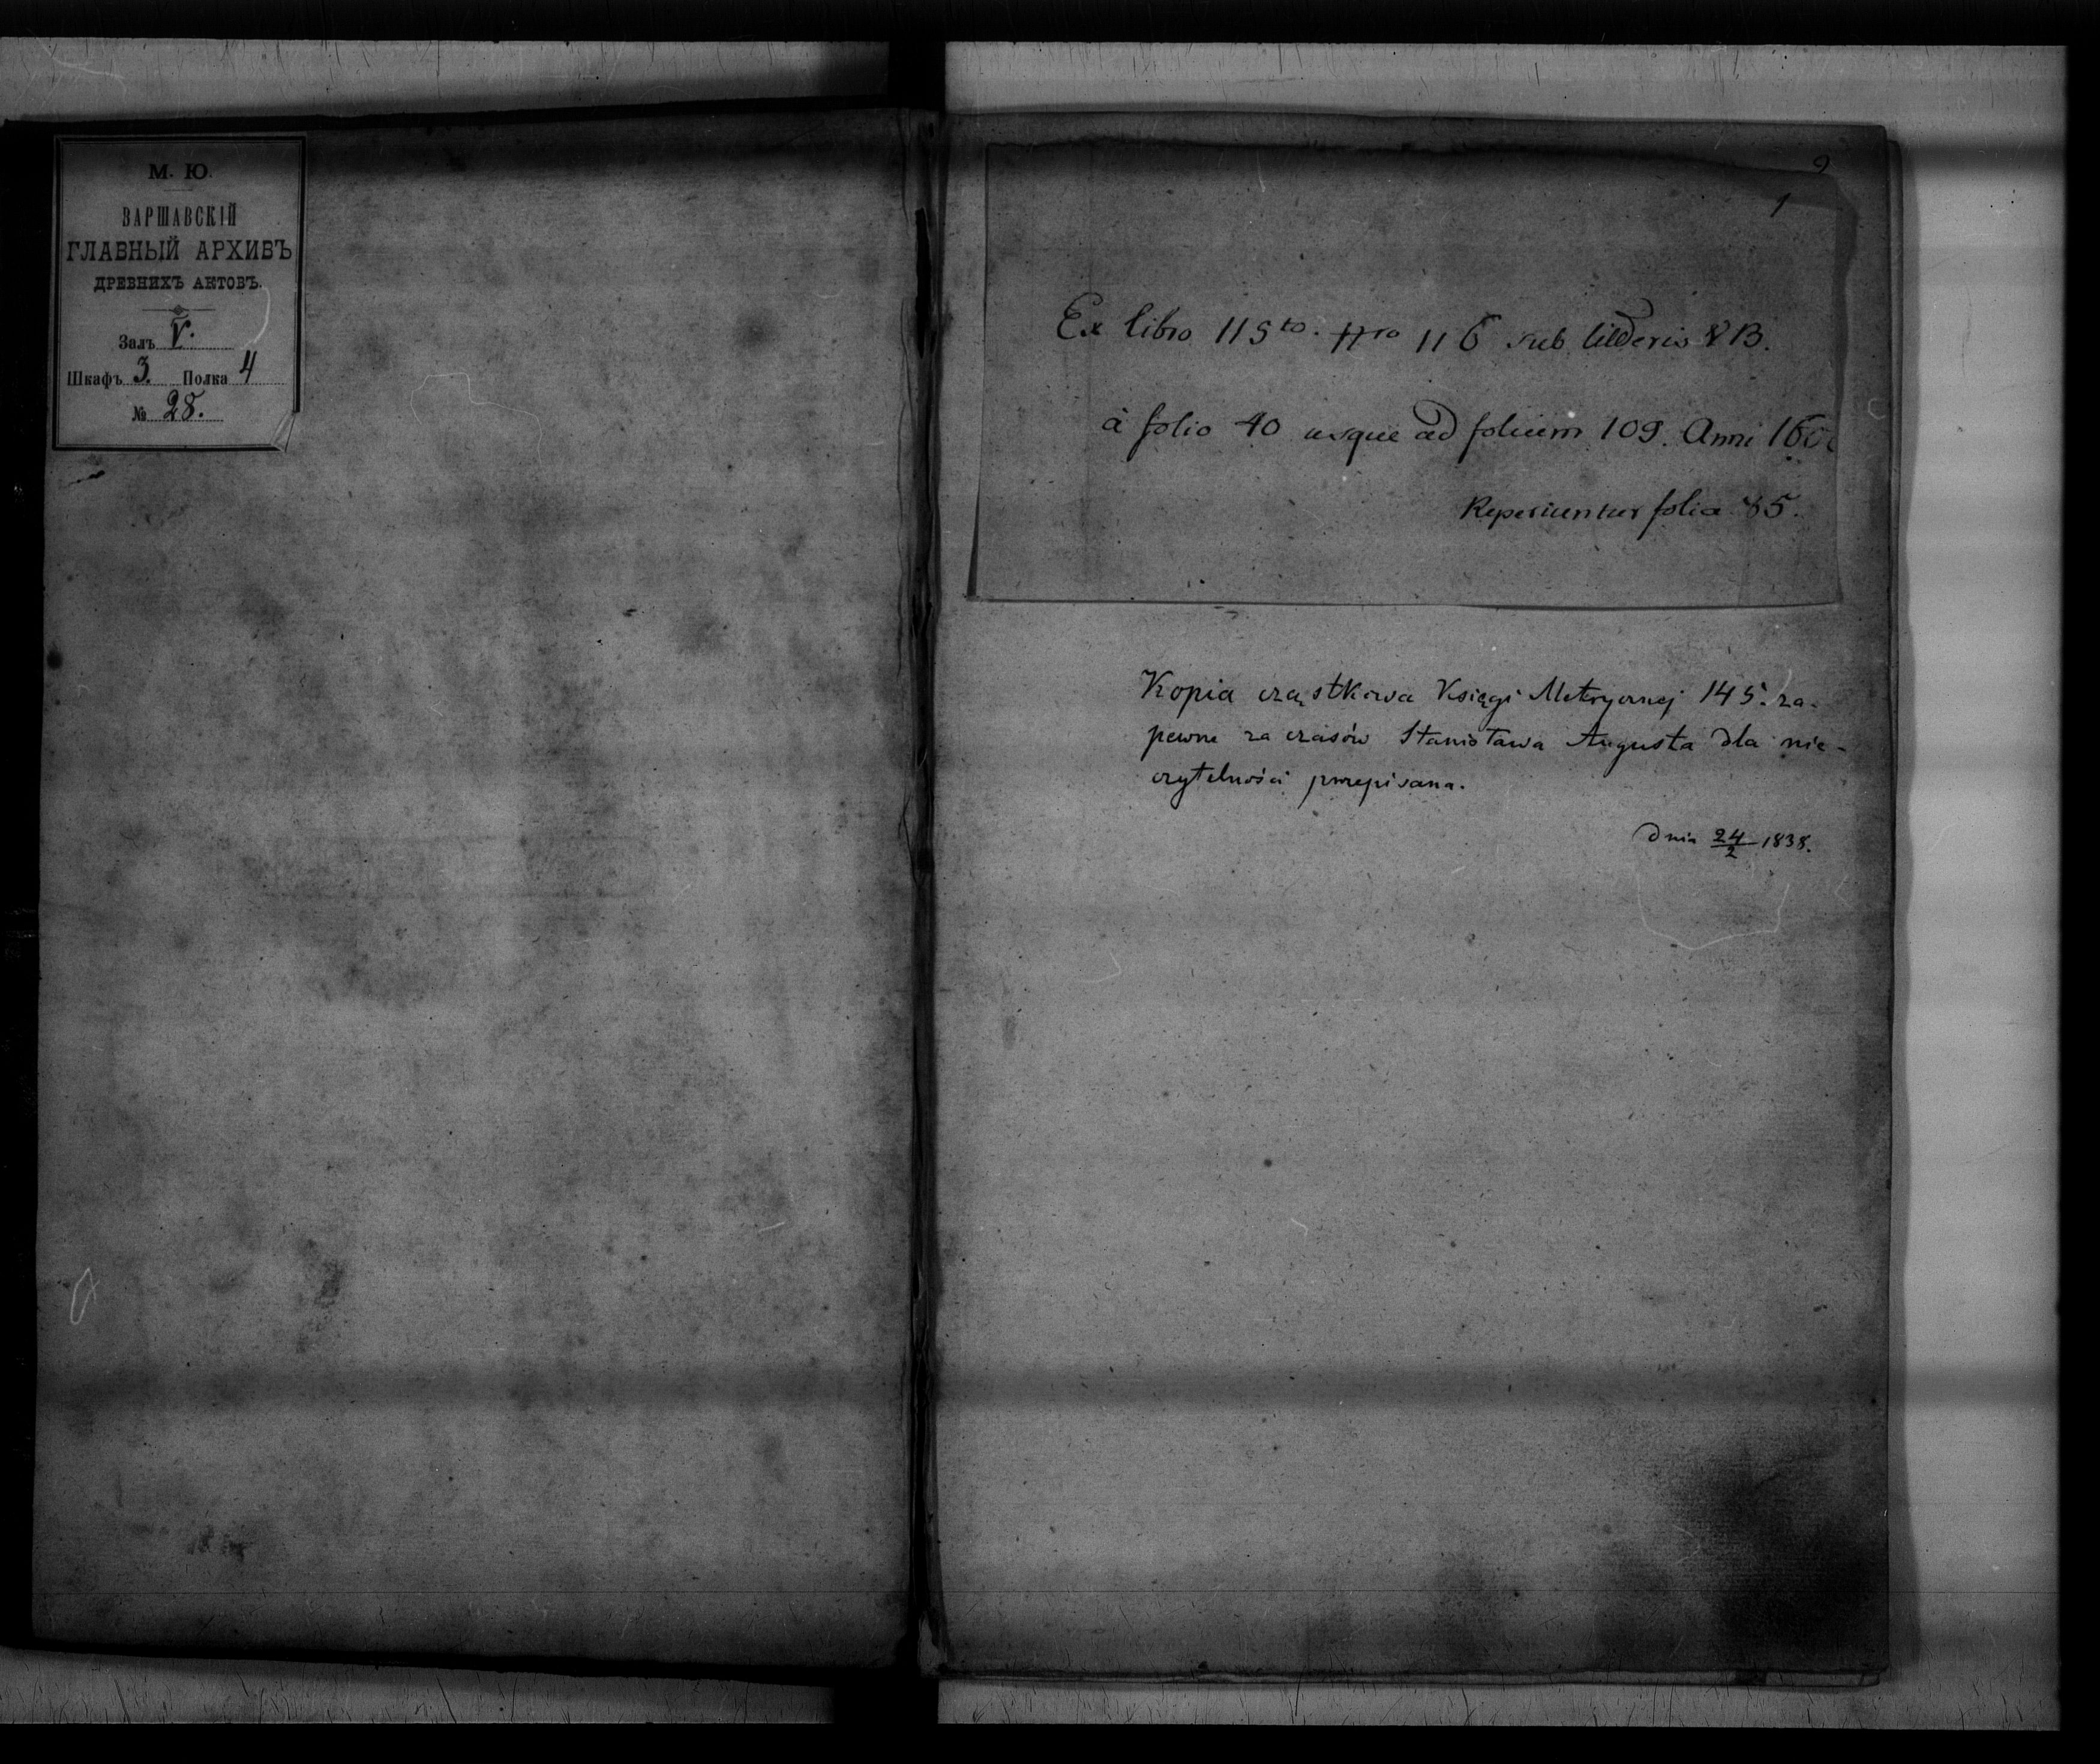 М. Ю.
ВАРШАВСКІЙ
ГЛАВНЫЙ АРХИВЪ
ДРЕВНИХЪ АКТОВЪ.
Залъ V.
Шкафъ 3. Полка 4
№ 28.
1
Ex libro 115to. Nro 116 sub litteris B.
à folio 40 usque ad folium 109. Anni
Reperiuntur folia 85.
Kopia cząstkowa Księgi Metrycznej 145. za-
pewne za czasów Stanisława Augusta dla nie-
czytelności przepisana.
Dnia 24/2 1838.